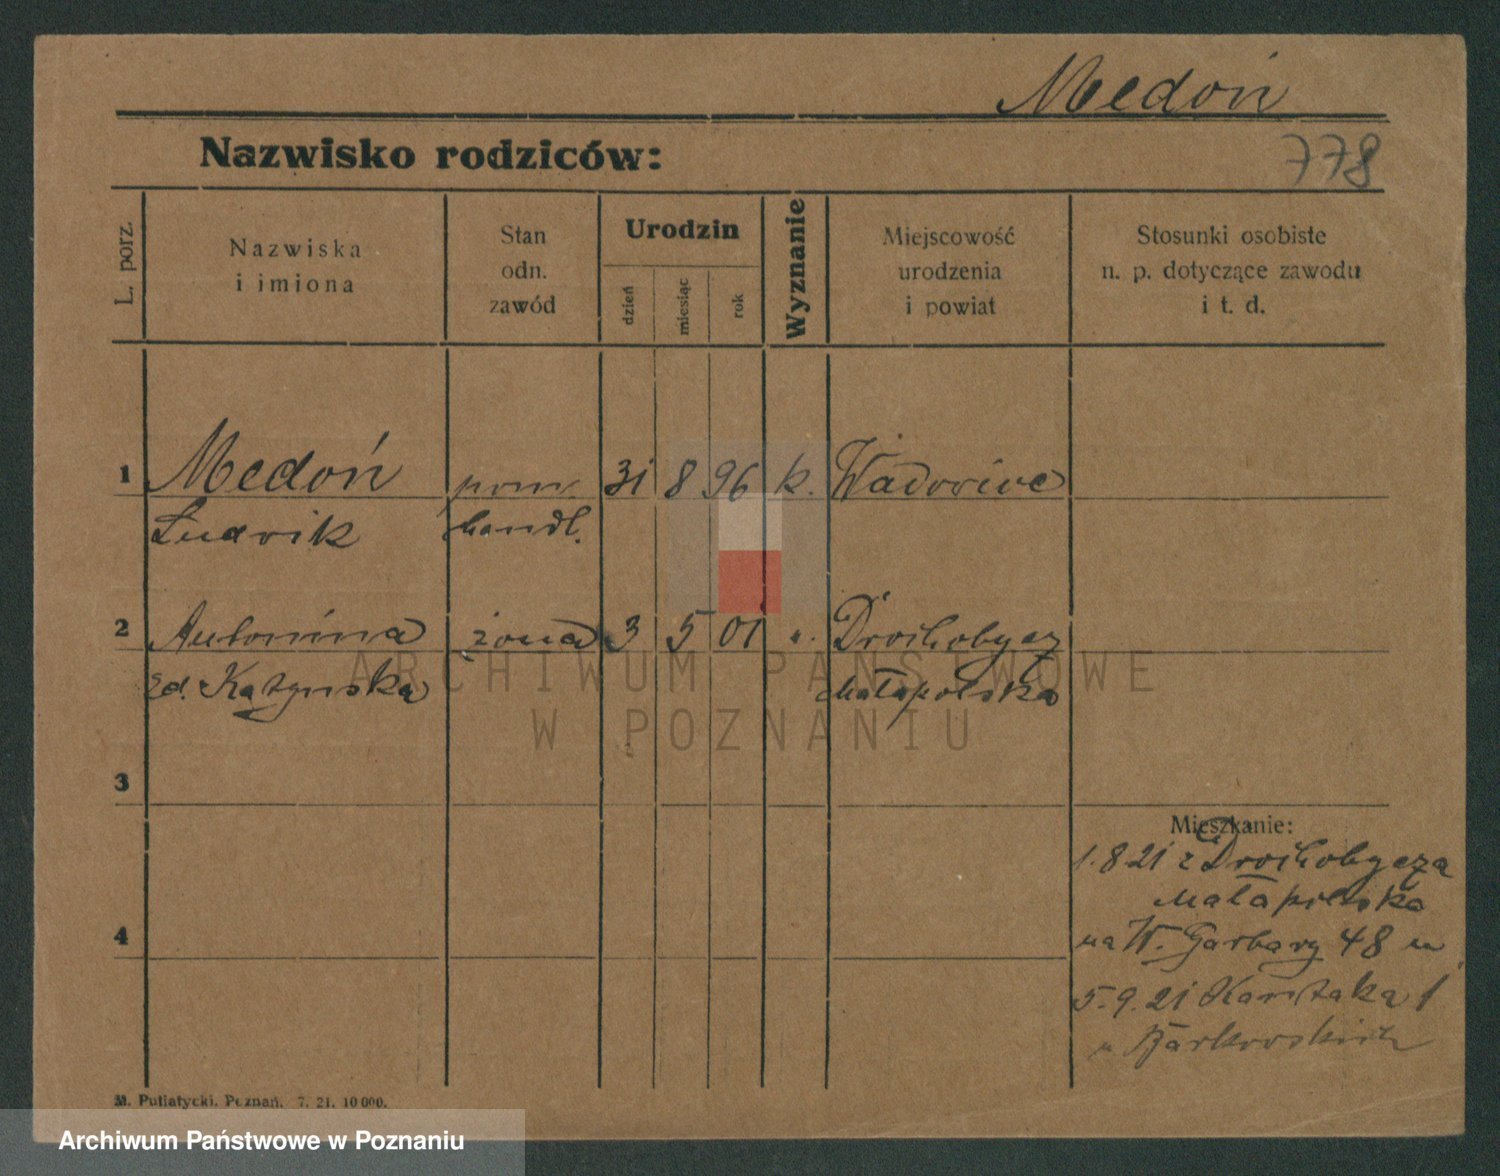 Medoń
Nazwisko rodziców:
778
L. porz.
Nazwiska
i imiona
Stan
odn.
zawód
Urodzin
dzień
miesiąc
rok
Wyznanie
Miejscowość
urodzenia
i powiat
Stosunki osobiste
n. p. dotyczące zawodu
i t. d.
1 Medoń pom. 31 8 96 k. Wadowice
Ludwik handl.
2 Antonina żona 3 5 01 ". Drohobycz
zd. Małapolska
3
4
Mieszkanie:
1.8.21 z Drohobycza
Małapolska
na W. Garbary 48
5.9.21 Kantaka 1
Barkowskich
M. Putiatycki, Poznań. 7. 21. 10 000.
ARCHIWUM PAŃSTWOWE
W POZNANIU
Archiwum Państwowe w Poznaniu